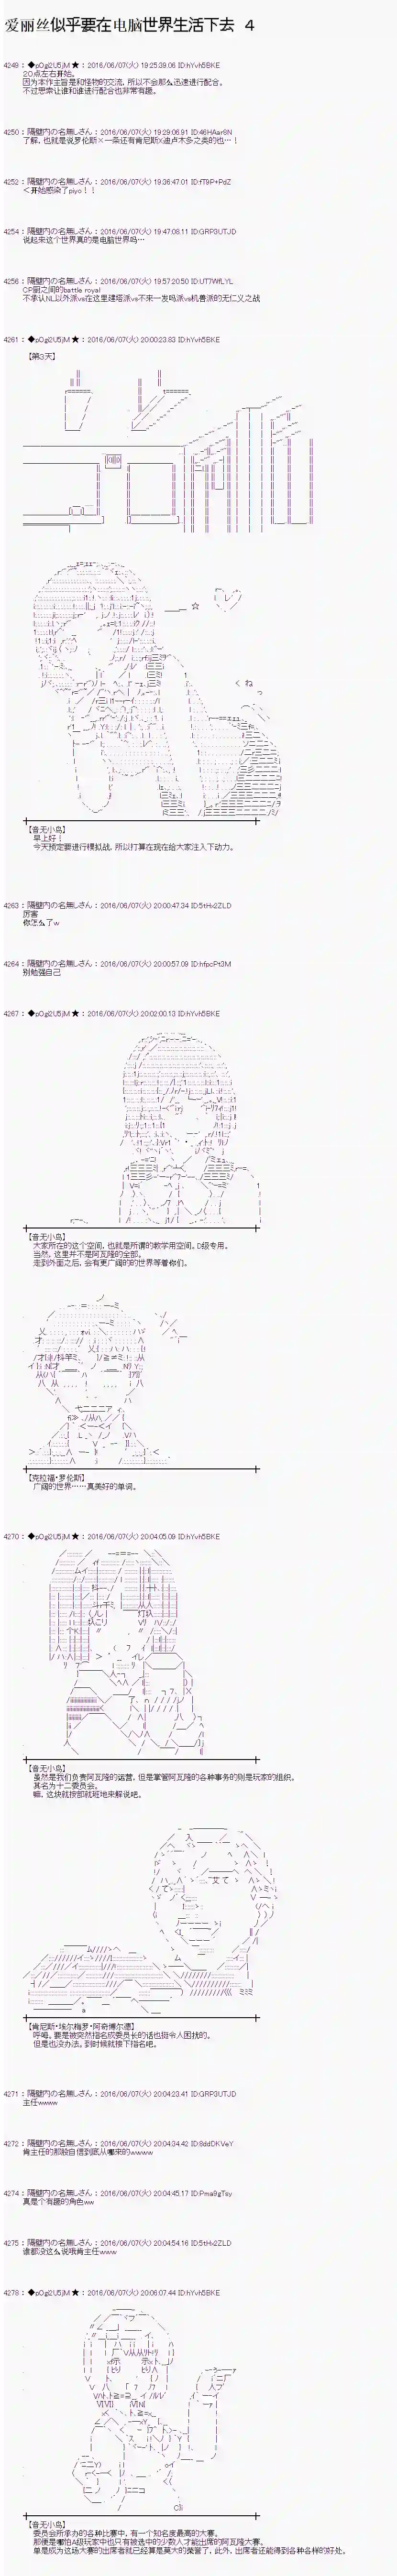 爱丽丝似乎要在电脑世界生活下去 4
4249： ◆pOgi2U5jM ★ ： 2016/06/07(火) 19:25:39.06 ID:hYvh5BKE
20点左右开始。
因为本作主旨是和怪物的交流，所以不会那么迅速进行配合。
不过思索让谁和谁进行配合也非常有趣。
4250： 隔壁内の名無しさん： 2016/06/07(火) 19:29:06.91 ID:46HAar8N
了解，也就是说罗伦斯×一条还有肯尼斯×迪卢木多之类的也…！
4252： 隔壁内の名無しさん： 2016/06/07(火) 19:36:47.01 ID:fT9P+PdZ
＜开始感染了piyo！！
4254： 隔壁内の名無しさん： 2016/06/07(火) 19:47:08.11 ID:GRP3UTJD
说起来这个世界真的是电脑世界吗…
4256： 隔壁内の名無しさん： 2016/06/07(火) 19:57:20.50 ID:UT7WfLYL
CP厨之间的battle royal
不承认NL以外派vs在这里建塔派vs不来一发吗派vs机兽派的无仁义之战
4261： ◆pOgi2U5jM ★ ： 2016/06/07(火) 20:00:23.83 ID:hYvh5BKE
【第3天】
【音无小鸟】
早上好！
今天预定要进行模拟战，所以打算在现在给大家注入下动力。
4263： 隔壁内の名無しさん： 2016/06/07(火) 20:00:47.34 ID:5tHv2ZLD
厉害
你怎么了w
4264： 隔壁内の名無しさん： 2016/06/07(火) 20:00:57.09 ID:hfpcPt3M
别勉强自己
4267： ◆pOgi2U5jM ★ ： 2016/06/07(火) 20:02:00.13 ID:hYvh5BKE
【音无小鸟】
大家所在的这个空间，也就是所谓的教学用空间。D级专用。
当然，这里并不是阿瓦隆的全部。
走到外面之后，会有更广阔的的世界等着你们。
【克拉福・罗伦斯】
广阔的世界……真美好的单词。
4270： ◆pOgi2U5jM ★ ： 2016/06/07(火) 20:04:05.09 ID:hYvh5BKE
【音无小鸟】
虽然是我们负责阿瓦隆的运营，但是掌管阿瓦隆的各种事务的则是玩家的组织。
其名为十二委员会。
嘛，这块就按部就班地来解说吧。
【肯尼斯・埃尔梅罗・阿奇博尔德】
呼嗯。要是被突然指名成委员长的话也挺令人困扰的。
但是也没办法。到时候就接下指名吧。
4271： 隔壁内の名無しさん： 2016/06/07(火) 20:04:23.41 ID:GRP3UTJD
主任wwww
4272： 隔壁内の名無しさん： 2016/06/07(火) 20:04:34.42 ID:8ddDKVeY
肯主任的那股自信到底从哪来的wwww
4274： 隔壁内の名無しさん： 2016/06/07(火) 20:04:45.17 ID:Pma9gTsy
真是个有趣的角色ww
4275： 隔壁内の名無しさん： 2016/06/07(火) 20:04:54.16 ID:5tHv2ZLD
谁都没这么说哦肯主任www
4278： ◆pOgi2U5jM ★ ： 2016/06/07(火) 20:06:07.44 ID:hYvh5BKE
【音无小鸟】
委员会所承办的各种比赛中，有一个知名度最高的大赛。
那便是哪怕A级玩家中也只有被选中的少数人才能出席的阿瓦隆大赛。
单是成为这场大赛的出席者就已经算是莫大的荣誉了，此外，出席者还能得到各种各样的好处。